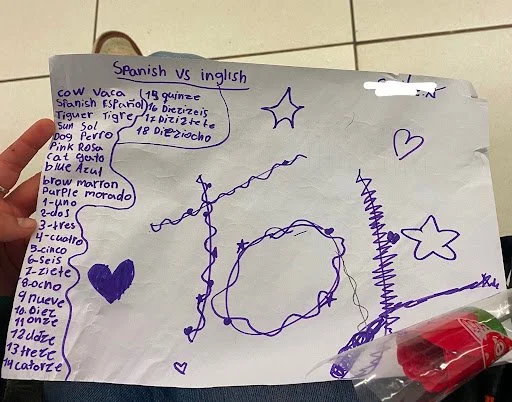 Spanish vs inglish
cow vaca
Spanish Español
Tiguer Tigre
Sun Sol
Dog Perro
Pink Rosa
cat gato
blue Azul
brow marron
Purple morado
1-uno
2-dos
3-tres
4-cuatro
5-cinco
6-seis
7-ziete
8-ocho
9 nueve
10. Diez
11 onze
12 dotze
13 treze
14 catorze
15 quinze
16 Diezizeis
17 Diziztete
18 Dieziocho